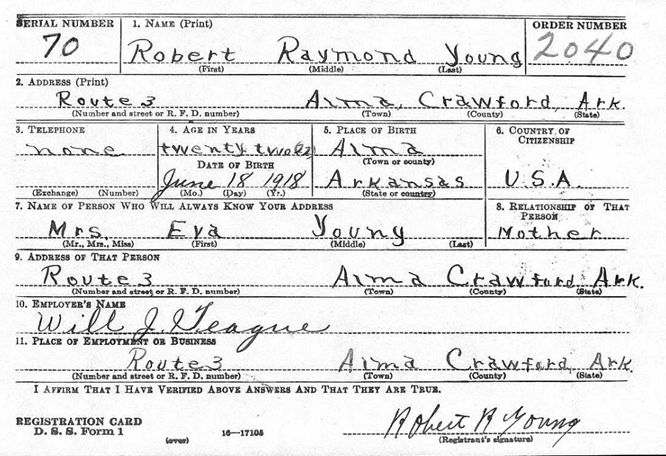 SERIAL NUMBER 1. NAME (Print) ORDER NUMBER
70 Robert Raymond Young 2040
(First) (Middle) (Last)
2. ADDRESS (Print)
Route 3 Alma, Crawford, Ark.
(Number and street or R. F. D. number) (Town) (County) (State)
3. TELEPHONE 4. AGE IN YEARS 5. PLACE OF BIRTH 6. COUNTRY OF CITIZENSHIP
none twenty two Alma
(Town or county)
DATE OF BIRTH
June 18 1918 Arkansas U.S.A.
(Exchange) (Number) (Mo.) (Day) (Yr.) (State or country)
7. NAME OF PERSON WHO WILL ALWAYS KNOW YOUR ADDRESS 8. RELATIONSHIP OF THAT PERSON
Mrs. Eva Young Mother
(Mr., Mrs., Miss) (First) (Middle) (Last)
9. ADDRESS OF THAT PERSON
Route 3 Alma Crawford, Ark.
(Number and street or R. F. D. number) (Town) (County) (State)
10. EMPLOYER'S NAME
Will J. Teague
11. PLACE OF EMPLOYMENT OR BUSINESS
Route 3 Alma Crawford, Ark
(Number and street or R. F. D. number) (Town) (County) (State)
I AFFIRM THAT I HAVE VERIFIED ABOVE ANSWERS AND THAT THEY ARE TRUE.
REGISTRATION CARD
D. S. S. Form 1 (over) 16—17105 Robert R Young
(Registrant's signature)